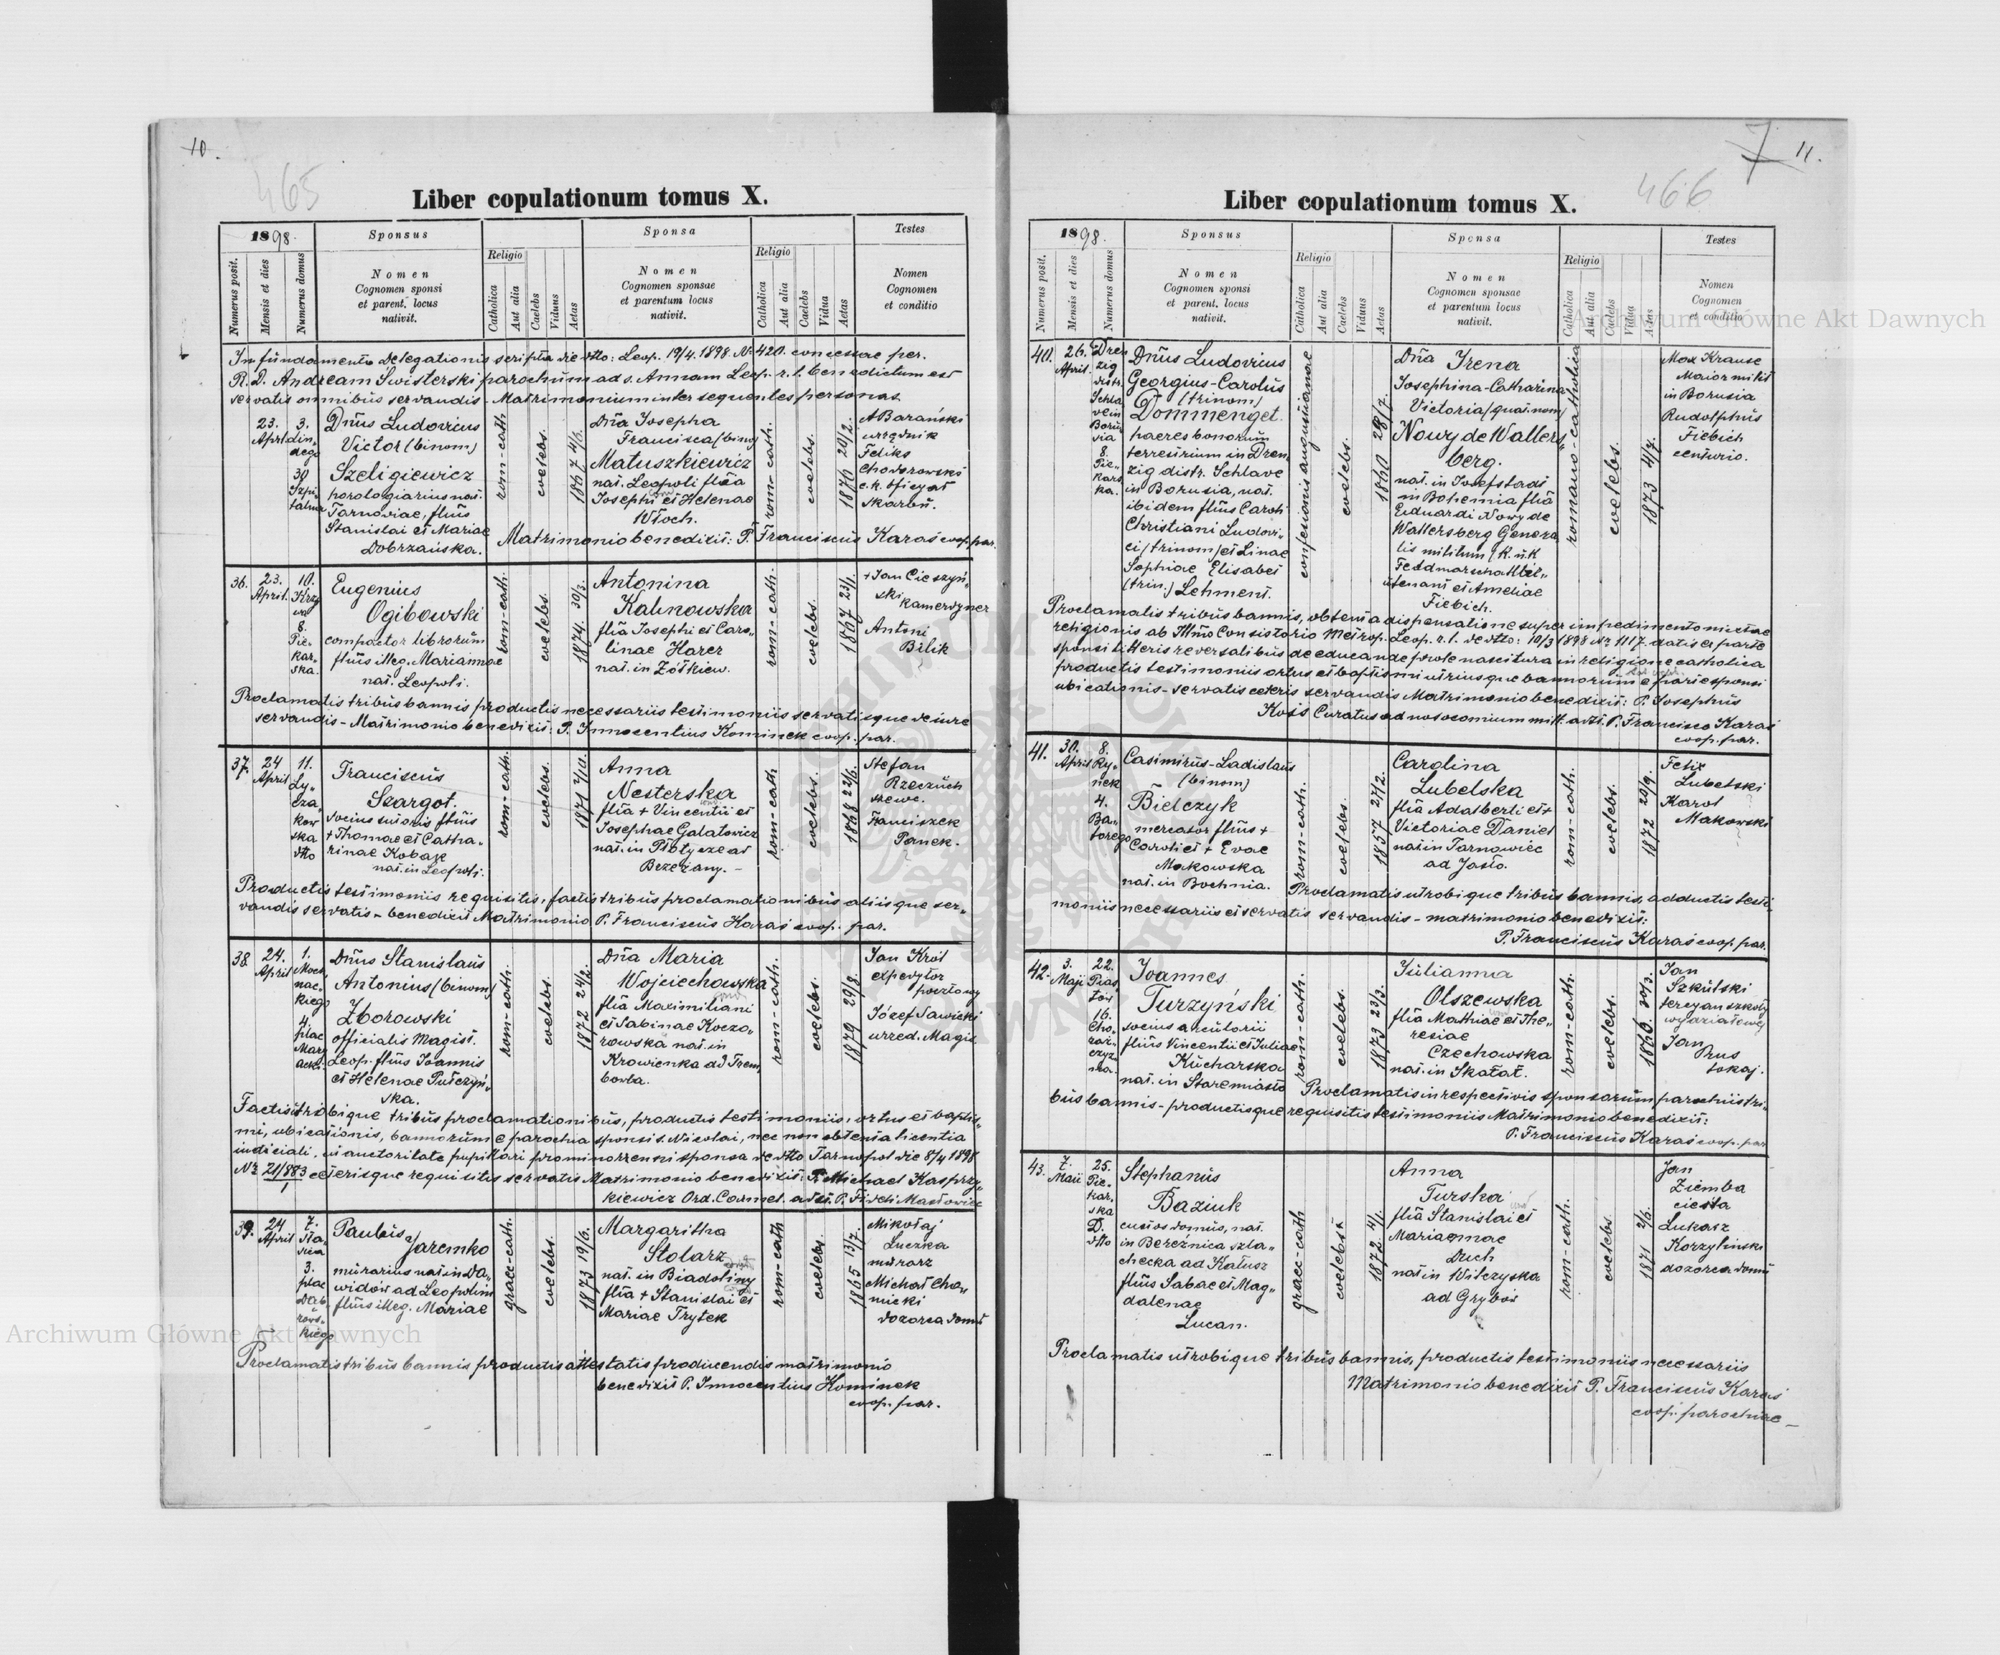 10.
465
Liber copulationum tomus X.
1898.
Sponsus
Sponsa
Testes
Numerus posit.
Mensis et dies
Numerus domus
Nomen
Cognomen sponsi
et parent. locus
nativit.
Religio
Catholica
Aut alia
Caelebs
Viduus
Aetas
Nomen
Cognomen sponsae
et parentum locus
nativit.
Religio
Catholica
Aut alia
Caelebs
Vidua
Aetas
Nomen
Cognomen
et conditio
In fundamento Delegationis scripta de dtto: Leop. 19/4. 1898 Nr 420. concessae per.
R. D. Andream Świsterski parochum ad s. Annam Leop. r. l. benedictum est
servatis omnibus servandis - Matrimonium inter sequentes personas
23.
April
3.
30
Szpi-
talna
Dnus Ludovicus
Victor (binom)
Szeligiewicz
horologiarius nat.
Tarnoviae, filius
Stanislai et Mariae
Dobrzańska.
rom-cath.
coelebs.
1867 4/6.
Dna Josepha
Francisca (binom)
Matuszkiewicz
nat. Leopoli filia
Josephi et Helenae
Włoch.
rom-cath.
coelebs.
1876 20/2.
A Barański
urzędnik
Feliks
Chodorowski
c.k. oficyał
skarbu.
Matrimonio benedixit: P. Franciscus Karaś coop. par.
36.
23.
April.
10.
Krzy
wa
8.
Pie-
kar-
ska.
Eugenius
Ogibowski
compactor librorum
filius illeg. Mariannae
nat. Leopoli.
rom-cath.
coelebs.
1874. 30/3.
Antonina
Kalinowska
filia Josephi et Caro-
linae Harcz
nat. in Żółkiew.
rom-cath.
coelebs.
1867 23/1.
+ Jan Cieszyń-
ski
kamerdyner
Antoni
Bilik
Proclamatis tribus bannis productis necessariis testimoniis servatisque de iure
servandis - Matrimonio benedixit: P. Innocentius Kominek coop. par.
37.
24
April
11.
Ly-
cza-
kow
ska
dtto
Franciscus
Szargot.
socius sutoris filius
+ Thomae et Catha-
rinae Kobak
nat. in Leopoli.
rom-cath.
coelebs.
1871 4/10.
Anna
Nesterska
filia + Vincentii et
Josephae Galatowicz
nat. in Płotycze ad
Brzeżany. -
rom-cath
coelebs.
1868 22/6.
Stefan
Franciszek
Panek.
Productis testimoniis requisitis, factis tribus proclamationibus aliisque ser-
vandis servatis - benedixit Matrimonio P. Franciscus Karaś coop. par.
38.
24.
April
1.
Moch
nac-
kiego
4.
plac
Mary
acki.
Dnus Stanislaus
Antonius (binom)
Zborowski
officialis Magist.
Leop. filius Joannis
et Helenae Pulczyń-
ska.
rom-cath.
coelebs.
1872 24/2.
Dna Maria
Wojciechowska
filia Maximiliani
et Sabinae Koczo-
rowska nat. in
Krowienka ad Trem
bowla.
rom-cath.
coelebs.
1879 29/8.
Jan Król
expedytor
pocztowy
Józef Sawicki
urzed. Magis.
Factis utrobique tribus proclamationibus, productis testimoniis, ortus et baptis-
mi, ubicationis, bannorum e parochia sponsi s. Nicolai, nec non obtenta licentia
iudiciali, vi auctoritate pupillari pro minorenni sponsa de dtto Tarnopol die 8/4 1898
Nr 21/883 ceterisque requisitis servatis Matrimonio benedixit: P. Michael Kasprzy-
1
kiewicz Ord. Carmel. adst. P. Fideli Masłowicz
39.
24
April
7.
3.
plac
Dąb-
rows-
kiego
Paulus
Jaremko
murarius nat in Da-
widów ad Leopolim
filius illeg. Mariae
graec-cath.
coelebs.
1873 19/6.
Margaritha
Stolarz
nat. in Biadoliny
filia + Stanislai et
Mariae Trytek
rom-cath
coelebs.
1865 13/7.
Mikołaj
Luczka
murarz
Michał Cha-
micki
dozorca domu
Proclamatis tribus bannis productis attestatis producendis matrimonio
benedixit P. Innocentius Kominek
coop. par.
7
11.
466
Liber copulationum tomus X.
1898.
Sponsus
Sponsa
Testes
Numerus posit.
Mensis et dies
Numerus domus
Nomen
Cognomen sponsi
et parent. locus
nativit.
Religio
Catholica
Aut alia
Caelebs
Viduus
Aetas
Nomen
Cognomen sponsae
et parentum locus
nativit.
Religio
Catholica
Aut alia
Caelebs
Vidua
Aetas
Nomen
Cognomen
et conditio
40.
26.
April.
Dren
zig
distr.
Schla
ve in
Boru
sia
8.
Pie-
kars
ka.
Dnus Ludovicus
Georgius-Carolus
(trinom)
Dommenget.
haeres bonorum
terrestrium in Dren
zig distr. Schlave
in Borusia, nat.
ibidem filius Caroli
Christiani Ludovi-
ci (trinom) et Linae
Sophiae Elisabet
(trin.) Lehment.
confesionis augustianae
coelebs.
1860 28/7.
Dna Irena
Josephina-Catharina
Victoria (quat. nom)
Nowy de Wallers-
berg.
nat. in Josefstadt
in Bohemia filia
Eduardi Nowy de
Wallersberg Genera
lis militum (k. u. k
Feldmarschalllei-
utenant et Ameliae
Fiebich.
romano-catholica
coelebs.
1873 4/7.
Max Krause
Maior milit
in Borusia
Rudolphus
Fiebich
centurio.
Proclamatis tribus bannis, obtenta dispensatione super impedimento mixtae
religionis ab Illmo Consistorio Metrop. Leop. r. l. de dtto: 10/3 1898 Nr 1117. datis ex parte
sponsi litteris reversalibus de educande prole nascitura in religione catholica
productis testimoniis ortus et baptismi utriusque bannorum e parte sponsi
ubicationis - servatis ceteris servandis Matrimonio benedixit: P. Josephus
Koss Curatus ad nosocomium milit. adst. P. Francisco Karaś
coop. par.
41.
30.
April
8.
Ry-
nek
4.
Ba-
torego
Casimirus-Ladislaus
(binom)
Bielczyk
mercator filius +
Caroli et + Evae
Makowska
nat. in Bochnia.
rom-cath.
coelebs.
1857 27/2.
Carolina
Lubelska
filia Adalberti et +
Victoriae Daniel
nat in Tarnowiec
ad Jasło.
rom-cath.
coelebs.
1872 20/9.
Felix
Lubelski
Karol
Makowski
Proclamatis utrobique tribus bannis, adductis testi-
moniis necessariis et servatis servandis - matrimonio benedixit:
P. Franciscus Karaś coop. par.
42.
3.
Maji
22.
16.
Cho-
rąż-
czyz
na.
Joannes
Turzyński
socius arcularii
filius Vincentii et Juliae
Kucharska
nat. in Staremiasto
rom-cath.
coelebs.
1873 23/3.
Julianna
Olszewska
filia Mathiae et The-
resiae
Czechowska
nat. in Skałat.
rom-cath.
coelebs.
1860. 30/3.
Jan
Szkulski
tercyan szkoły
wydziałowej
Jan
Rus
lokaj.
Proclamatis in respectivis sponsorum parochiis tri-
bus bannis - productisque requisitis testimoniis Matrimonio benedixit:
P. Franciscus Karaś coop. par
43.
7.
Maii
25.
Pie-
kar-
ska
D.
dtto
Stephanus
Baziuk
custos domus, nat.
in Bereźnica szla-
checka ad Kałusz
filius Sabae et Mag-
dalenae
Lucan.
graec-cath
coelebs.
1872 4/1.
Anna
Turska
filia Stanislai et
Mariannae
Duch
nat in Wilczyska
ad Grybów
rom-cath.
coelebs.
1871 2/6.
Jan
Ziemba
cieśla
Lukasz
Korzyliński
dozorca domu
Proclamatis utrobique tribus bannis, productis testimoniis necessariis
Matrimonio benedixit P. Franciscus Karaś
coop. parochiae -
Archiwum Główne Akt Dawnych
Archiwum Główne Akt Dawnych